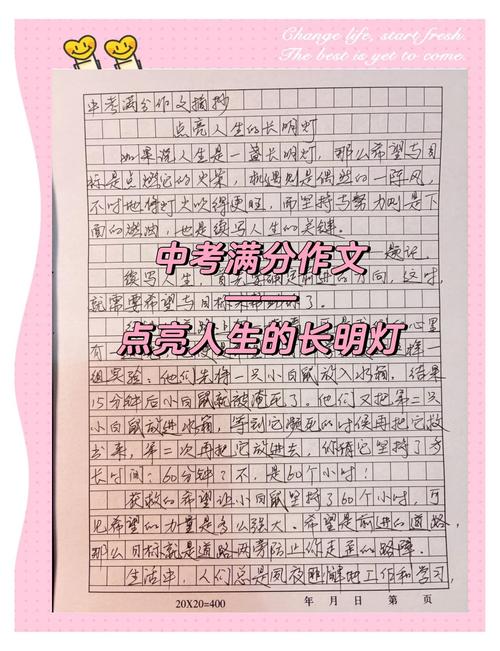 Change life, start fresh.
The best is yet to come.
中考满分作文摘抄
点亮人生的长明灯
如果说人生是一盏长明灯,那么希望与目
标是点燃它的火柴,机遇则是偶然的一阵风,
不时地使灯火吹得更旺,而坚持与努力则是下
面的燃油,也是续写人生的关键。
中考满分作文
题记
续写人生,首先要确定前进的方向,这时,
就需要希望与目标
了。
点亮人生的长明灯
心里
有一
样一
组实验:他们先将一只小白鼠放入水箱,结果
15分钟后小白鼠就被淹死了。他们又把第二只
小白鼠放进水箱,等到它濒死的时候再把它救
出来,第二次再把它放进去,你猜它坚持了多
长时间?60分钟?不,是60个小时!
获救的希望让小白鼠坚持了60个小时,可
见希望的力量是多么强大。希望是前进的道路,
那么目标就是道路两旁防止你走歪的路障。
生活中,人们总是夙夜匪懈地工作和学习,
20X20=400
年 月 日 第 页